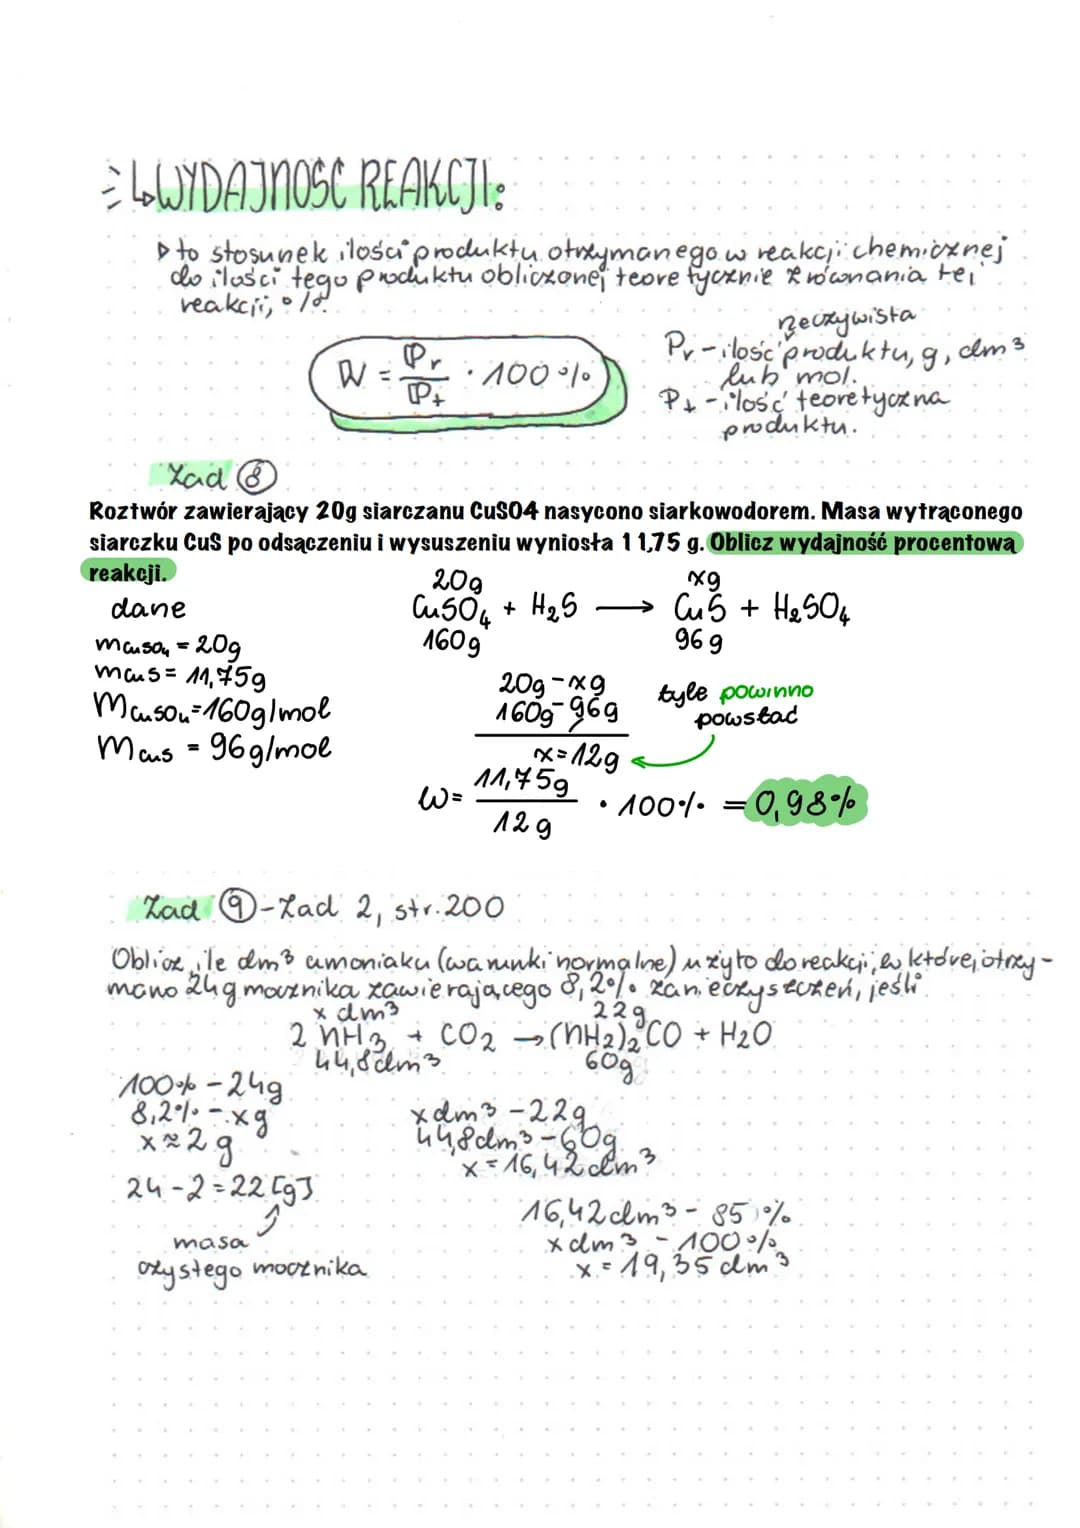 ↳WYDAJNOŚĆ REAKCJI:
▷ to stosunek ilości produktu otrzymanego w reakcji chemicznej
do ilości tego produktu obliczonej teoretycznie z równania tej
reakcji, %.
W = Pr / Pt · 100%
rzeczywista
Pr - ilość produktu, g, dm³
lub mol.
Pt - ilość teoretyczna
produktu.
Zad 8
Roztwór zawierający 20g siarczanu CuSO4 nasycono siarkowodorem. Masa wytrąconego
siarczku CuS po odsączeniu i wysuszeniu wyniosła 11,75 g. Oblicz wydajność procentową
reakcji.
20g xg
dane
CuSO₄ + H₂S → CuS + H₂SO₄
160g 96g
mCuSO₄ = 20g
mCuS = 11,75g
MCuSO₄ = 160g/mol
MCuS = 96g/mol
20g - xg
160g - 96g
tyle powinno
powstać
x = 12g
W = 11,75g / 12g · 100% = 0,98%
Zad 9 - Zad 2, str. 200
Oblicz, ile dm³ amoniaku (warunki normalne) użyto do reakcji, w której otrzy-
mano 24g mocznika zawierającego 8,2% zanieczyszczeń, jeśli
x dm³ 22g
2 NH3 + CO2 → (NH2)2CO + H2O
44,8dm³ 60g
100% - 24g
8,2% - xg
x ≈ 2g
24 - 2 = 22 [g]
masa
czystego mocznika
x dm³ - 22g
44,8dm³ - 60g
x = 16,42 dm³
16,42 dm³ - 85%
x dm³ - 100%
x = 19,35 dm³